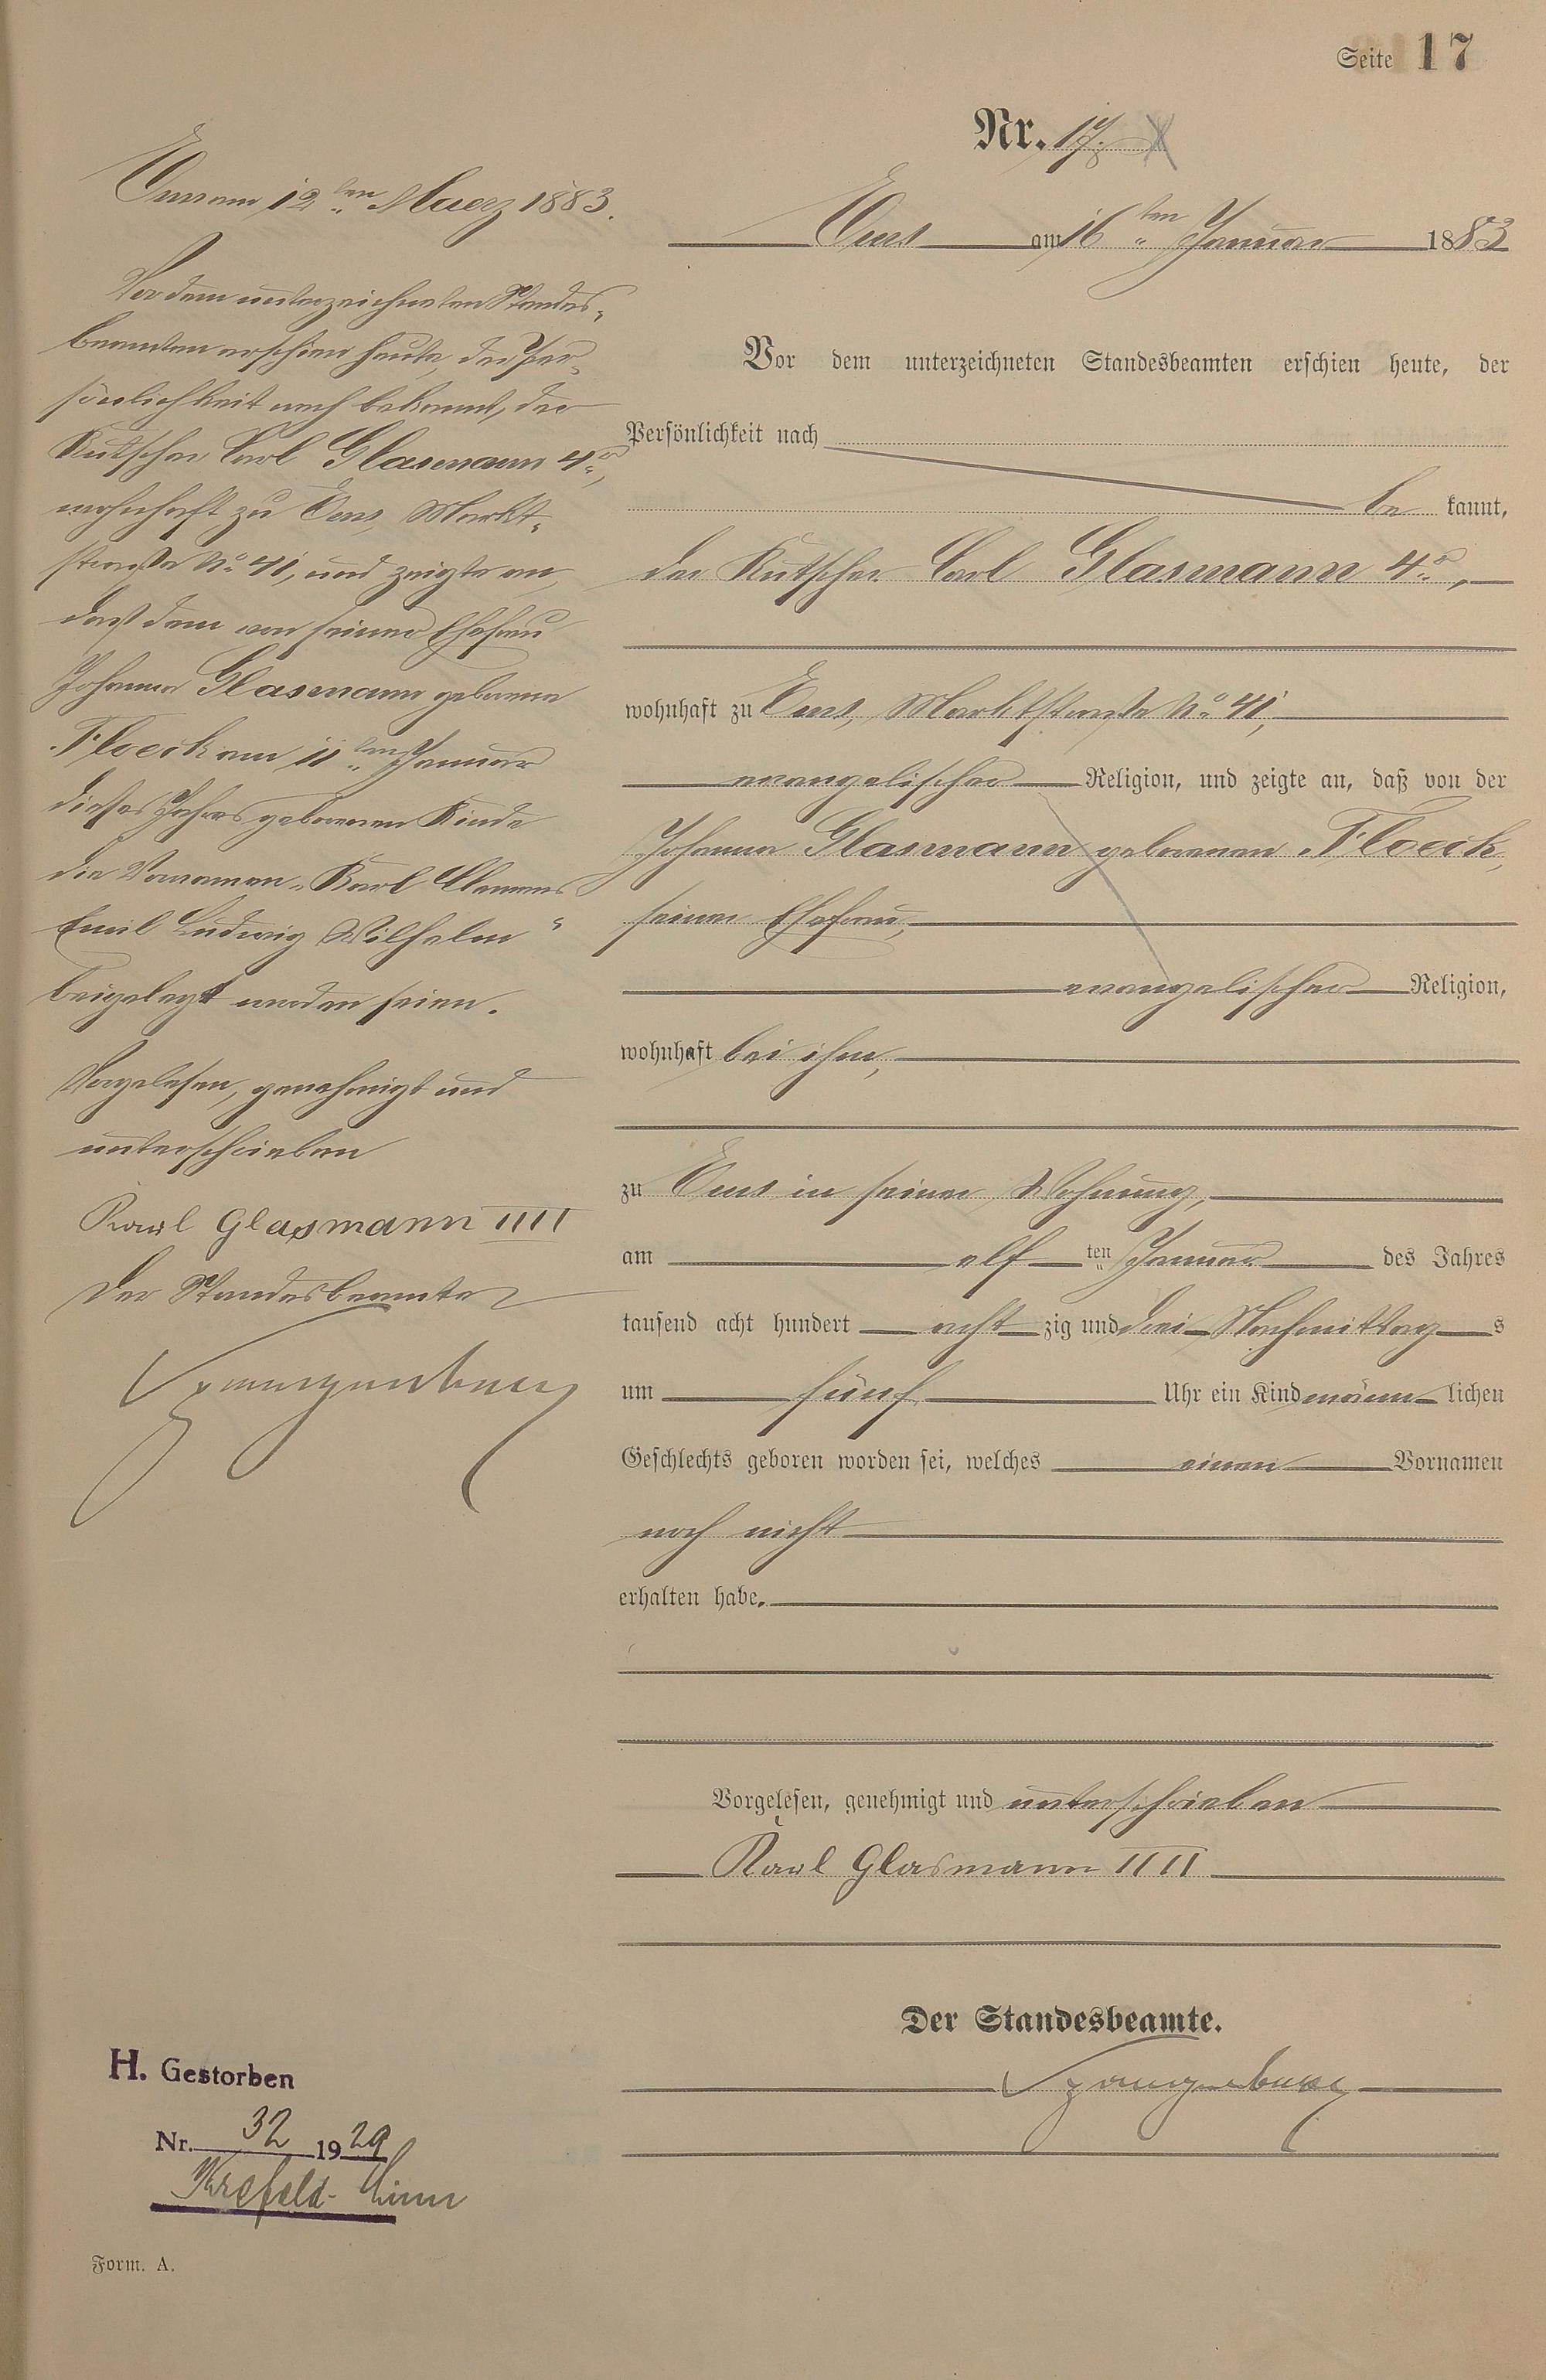 Seite 17
Nr. 17.
Ems am 16ten Januar 1883
Vor dem unterzeichneten Standesbeamten erschien heute, der
Persönlichkeit nach
be kannt,
der Kutscher Carl Glasmann 4r,
wohnhaft zu Ems, Marktstraße No 41,
evangelischer Religion, und zeigte an, daß von der
Johanna Glasmann geborenen Floeck,
seiner Ehefrau,
evangelischer Religion,
wohnhaft bei ihm,
zu Ems in seiner Wohnung,
am elf ten Januar des Jahres
tausend acht hundert acht zig und drei Nachmittag s
um fünf Uhr ein Kind männ lichen
Geschlechts geboren worden sei, welches einen Vornamen
noch nicht
erhalten habe.
Vorgelesen, genehmigt und unterschrieben
Karl Glasmann IIII
Der Standesbeamte.
Spangenberg
Ems am 12ten Maerz 1883.
Vor dem unterzeichneten Standes-
beamten erschien heute, der Per-
sönlichkeit nach bekannt, der
Kutscher Carl Glasmann 4r,
wohnhaft zu Ems, Markt-
straße No 41, und zeigte an,
daß dem von seiner Ehefrau
Johanna Glasmann geborenen
Floeck am 11ten Januar
dieses Jahres geborenen Kinde
die Vornamen "Karl Clemens
Emil Ludwig Wilhelm"
beigelegt worden seien.
Vorgelesen, genehmigt und
unterschrieben
Karl Glasmann IIII
Der Standesbeamte
Spangenberg
H. Gestorben
Nr. 32 1929
Krefeld-Linn
Form. A.